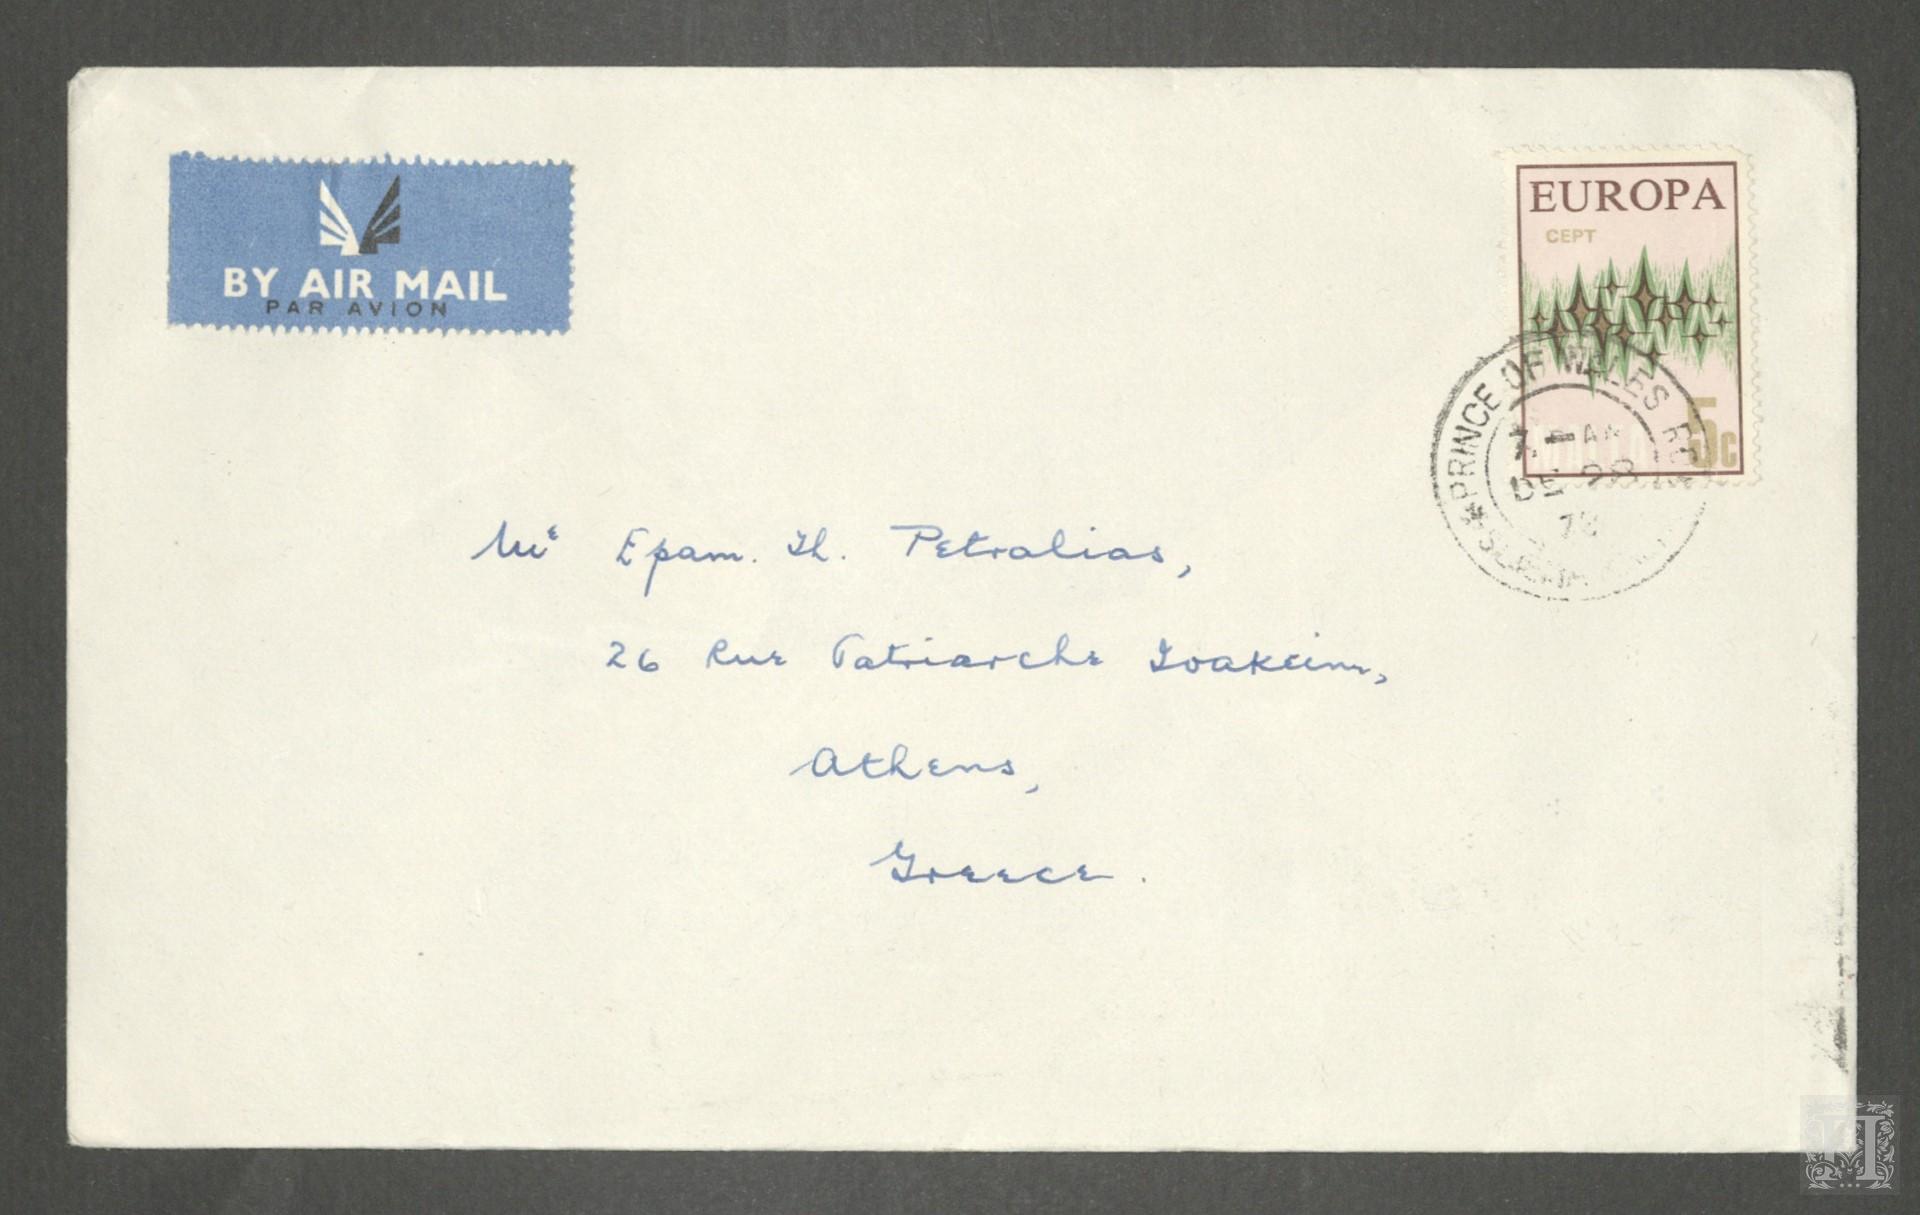 BY AIR MAIL
PAR AVION
EUROPA
CEPT
5c
MALTA
PRINCE OF WALES RD
DE 28
Mr Epam. Th. Petralias,
26 Rue Patriarche Ioakeim,
Athens,
Greece.